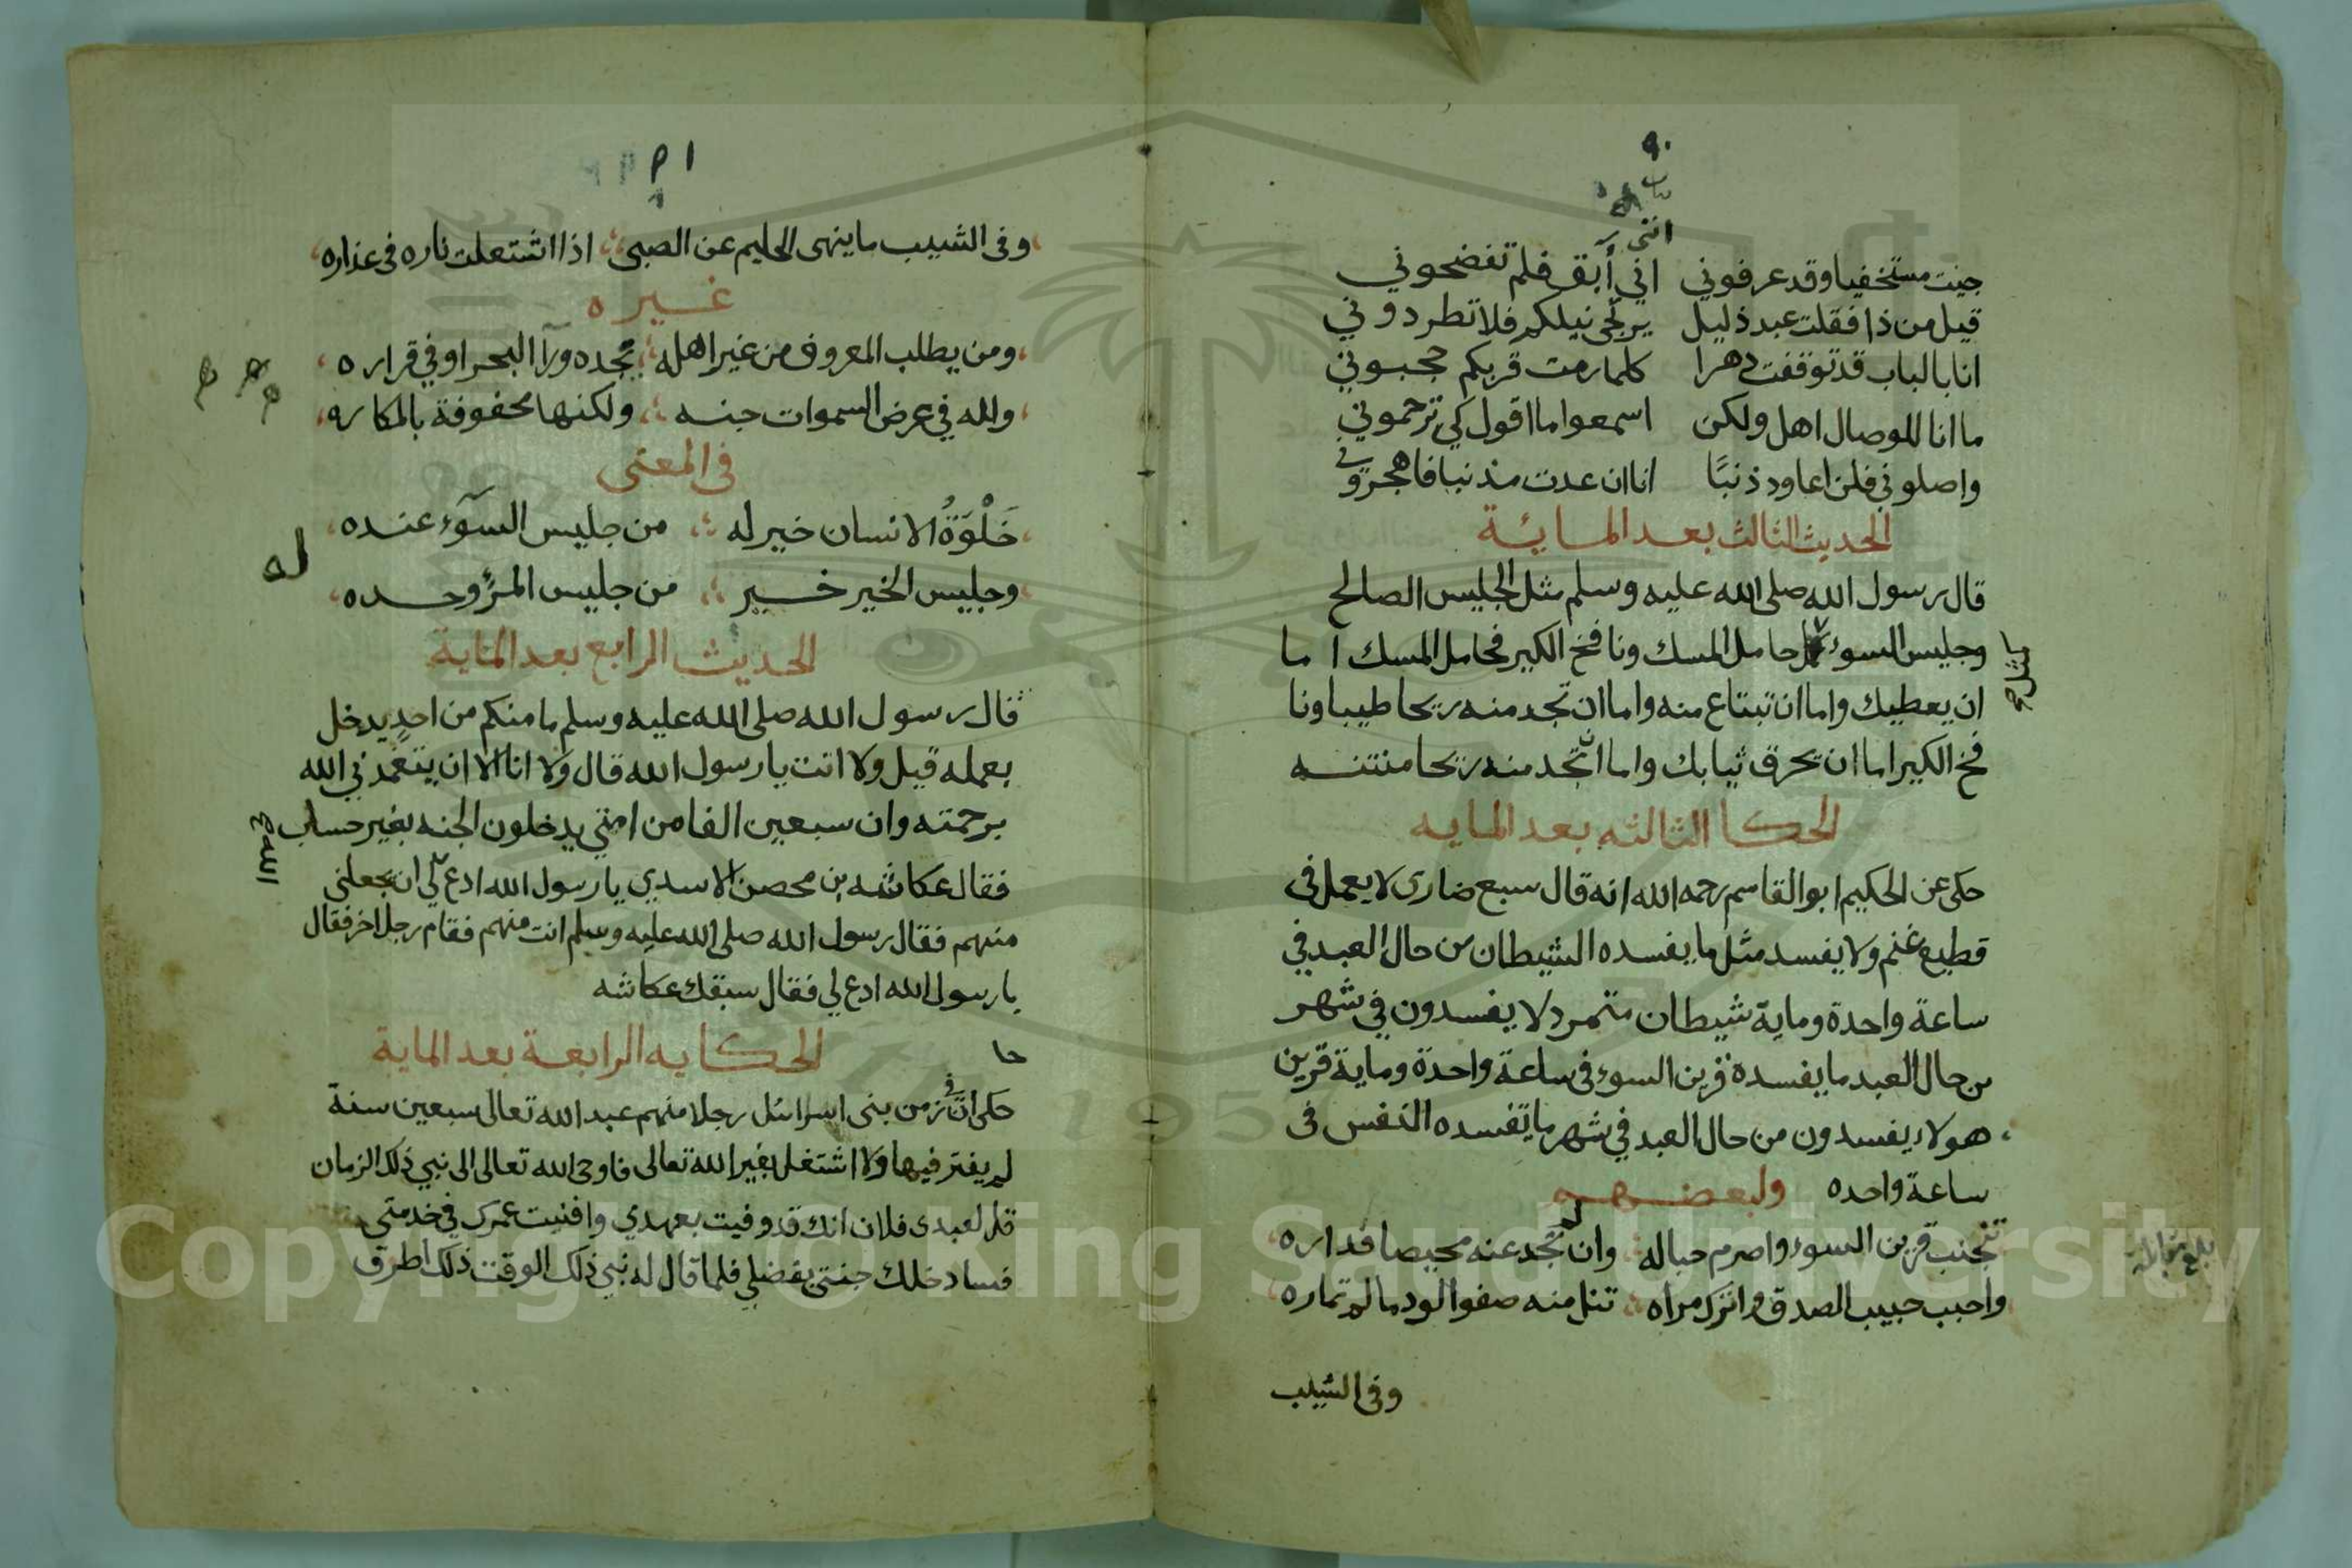 ٩٠
انني
جيت مستخفيا وقد عرفوني اني أبق فلم تفضحوني
قيل من ذا فقلت عبد ذليل يرتجي نيلكم فلا تطردوني
انا بالباب قد توقفت دهرا كلما رمت قربكم حجبوني
ما انا للوصال اهل ولكن اسمعوا ما اقول كي ترحموني
واصلوني فلن اعاود ذنبًا انا ان عدت مذنبا فاهجروني
الحديث الثالث بعد المائة
قال رسول الله صلى الله عليه وسلم مثل الجليس الصالح
وجليس السوء حامل المسك ونافخ الكير فحامل المسك اما
كمثل صح
ان يعطيك واما ان تبتاع منه واما ان تجد منه ريحا طيبا ونا
فخ الكير اما ان يحرق ثيابك واما ان تجد منه ريحا منتنه
الحكا الثالثه بعد المايه
حكى عن الحكيم ابو القاسم رحمه الله انه قال سبع ضاري لا يعمل في
قطيع غنم ولا يفسد مثل ما يفسده الشيطان من حال العبد في
ساعة واحدة وماية شيطان متمرد لا يفسدون في شهر
من حال العبد ما يفسده قرين السوء في ساعة واحدة وماية قرين
هولاء يفسدون من حال العبد في شهر ما تفسده النفس في
ساعة واحده ولبعضهم
تجنب قرين السوء واصرم حباله وان لم تجد عنه محيصا فداره
واحبب حبيب الصدق واترك مراه تنل منه صفو الود ما لم تماره
بلغ مقابلة
وفي الشيب
٩١
وفي الشيب ما ينهى الحليم عن الصبى اذا اشتعلت ناره في عذاره
غيره
ومن يطلب المعروف من غير اهله يجده ورآ البحر او في قراره
ولله في عرض السموات جنه ولكنها محفوفة بالمكاره
في المعنى
خَلْوَةُ الانسان خير له من جليس السوٓء عنده
وجليس الخير خير من جليس المرؤ وحده
له
الحديث الرابع بعد الماية
قال رسول الله صلى الله عليه وسلم ما منكم من احدٍ يدخل
بعمله قيل ولا انت يا رسول الله قال ولا انا الا ان يتغمدني الله
برحمته وان سبعين الفا من امتي يدخلون الجنه بغير حساب
فقال عكاشه بن محصن الاسدي يا رسول الله ادع لي ان يجعلني
الله صح
منهم فقال رسول الله صلى الله عليه وسلم انت منهم فقام رجل اخر فقال
يا رسول الله ادع لي فقال سبقك عكاشه
الحكايه الرابعة بعد الماية
حكى انّ في زمن بني اسرائل رجلا منهم عبد الله تعالى سبعين سنة
لم يفتر فيها ولا اشتغل بغير الله تعالى فاوحى الله تعالى الى نبي ذلك الزمان
قل لعبدي فلان انك قد وفيت بعهدي وافنيت عمرك في خدمتي
فسادخلك جنتي بفضلي فلما قال له نبي ذلك الوقت ذلك اطرق
Copyright © King Saud University
1957